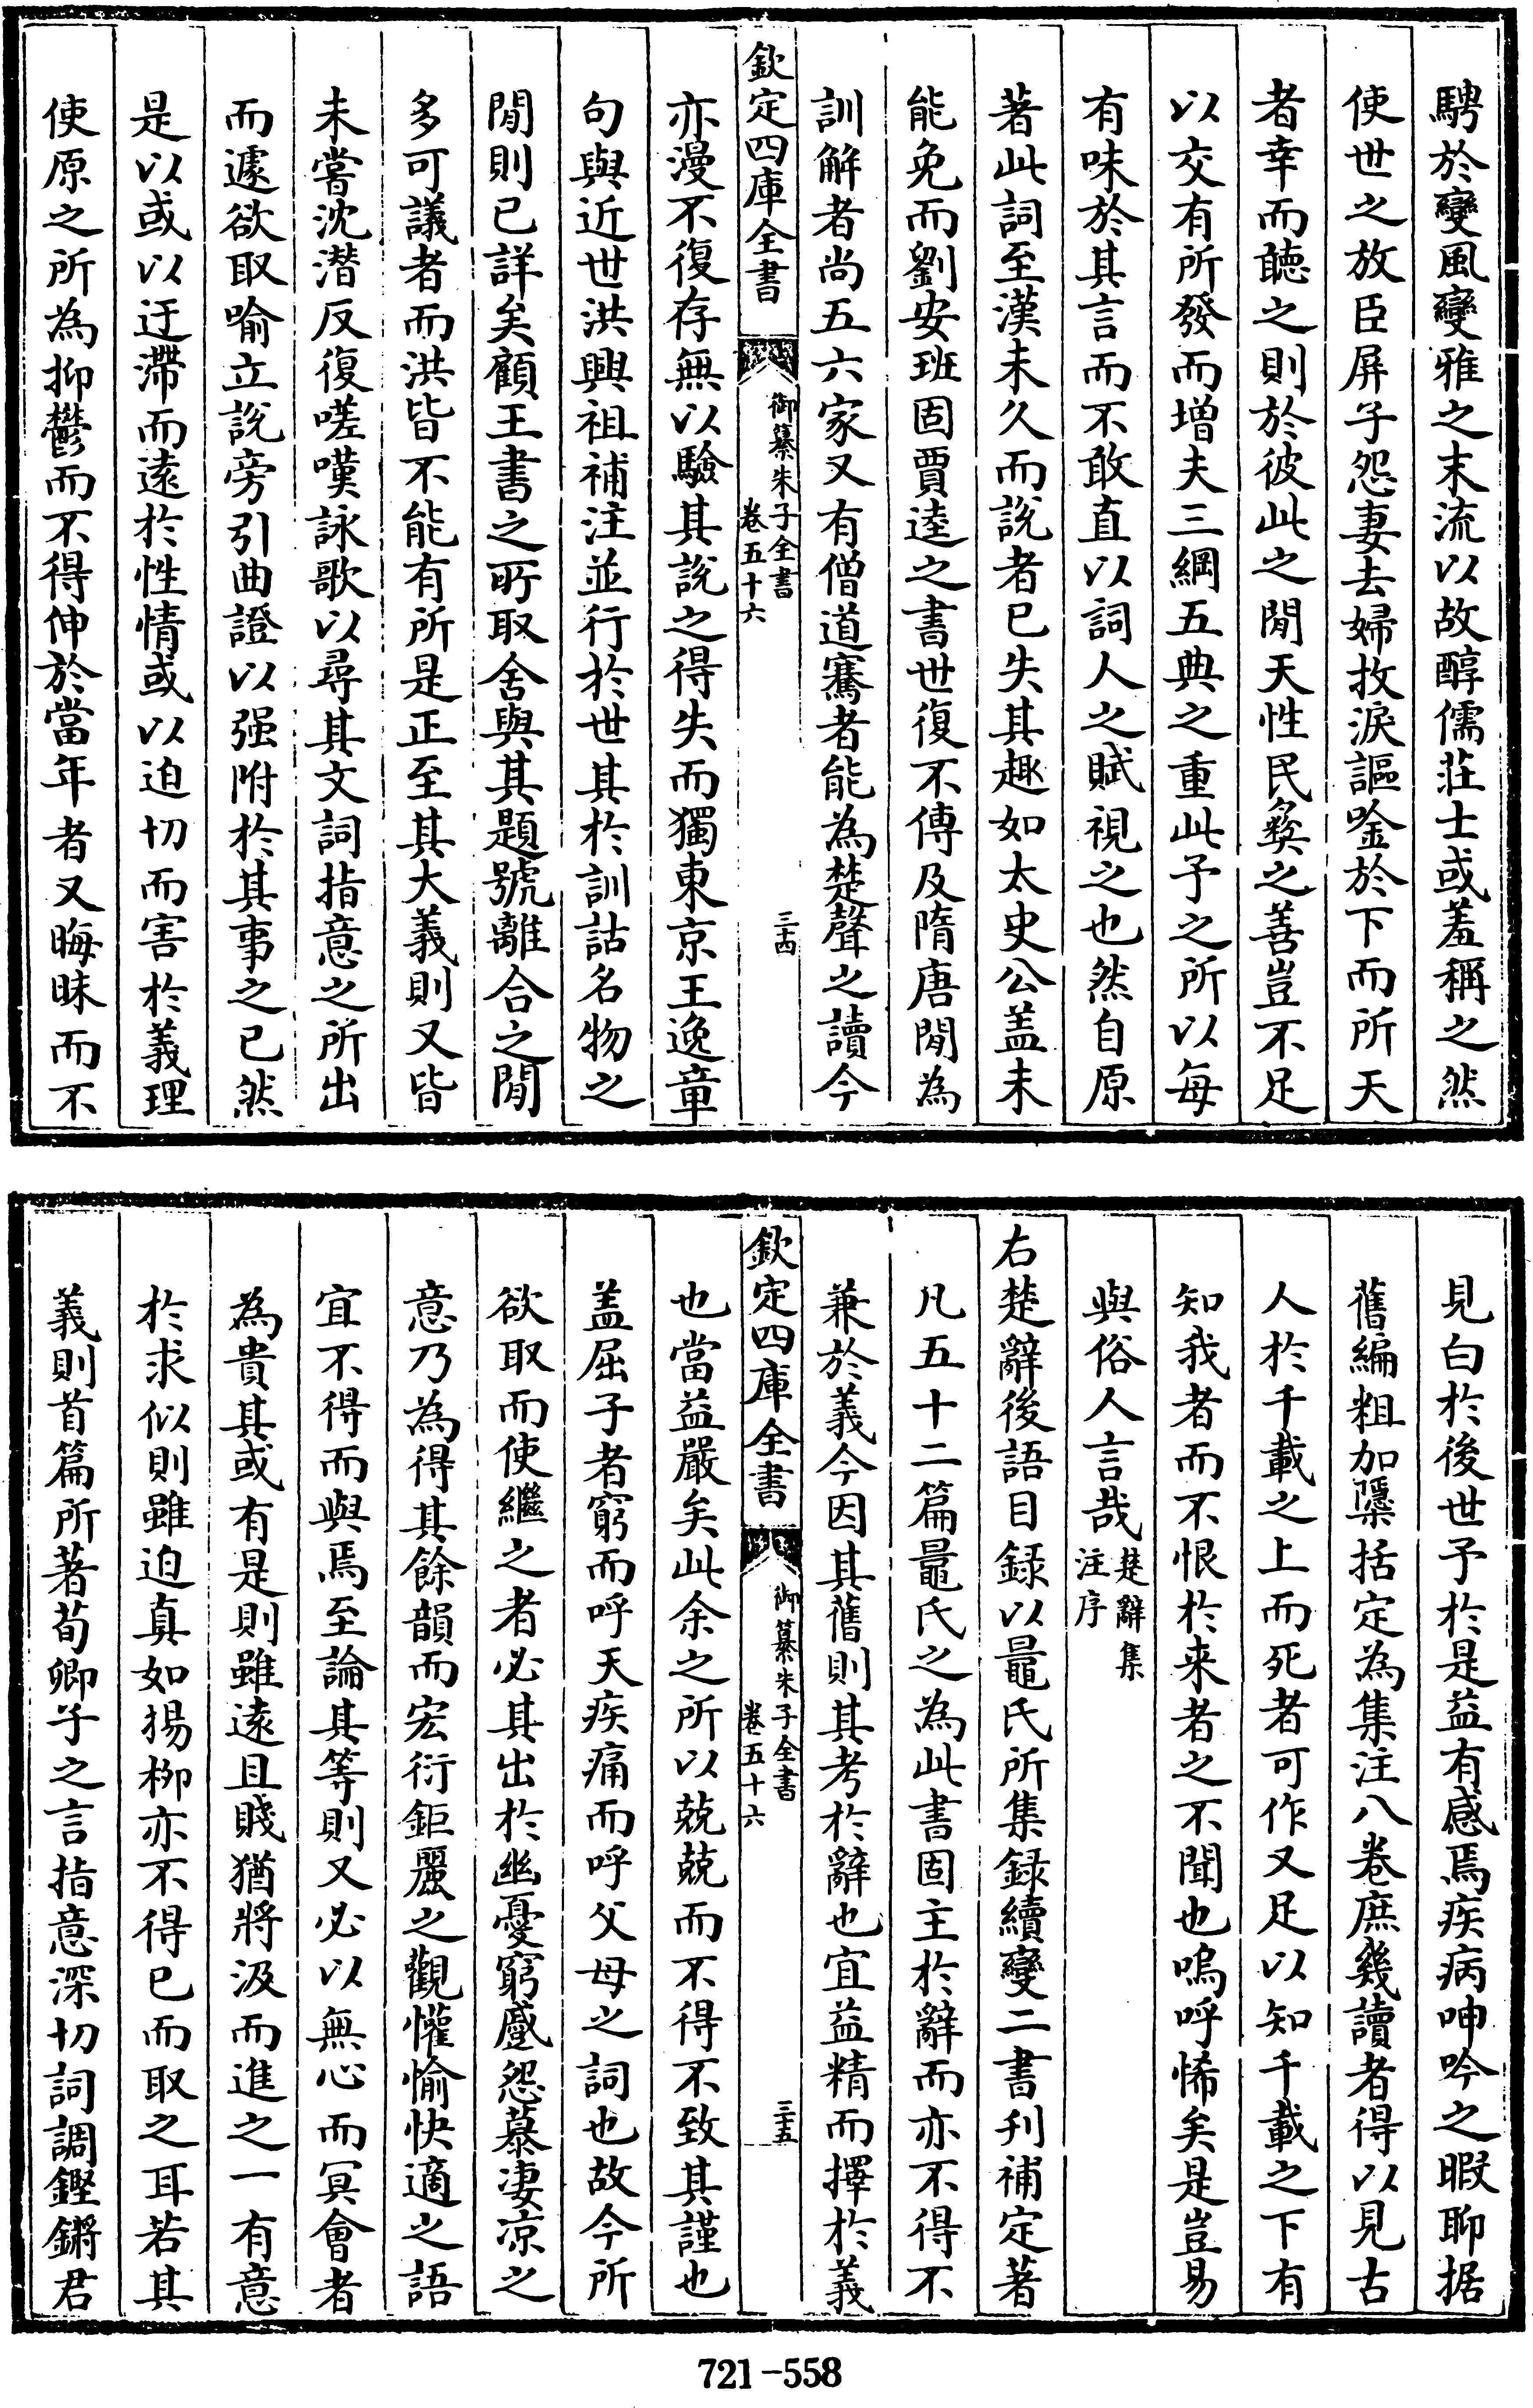 騁於變風變雅之末流以故醇儒莊士或羞稱之然
使世之放臣屏子怨妻去婦抆淚謳唫於下而所天
者幸而聽之則於彼此之閒天性民彜之善豈不足
以交有所發而增夫三綱五典之重此予之所以每
有味於其言而不敢直以詞人之賦視之也然自原
著此詞至漢未久而說者已失其趣如太史公盖未
能免而劉安班固賈逵之書世復不傳及隋唐閒為
訓解者尚五六家又有僧道騫者能為楚聲之讀今
欽定四庫全書
御纂朱子全書
卷五十六
三十四
亦漫不復存無以驗其說之得失而獨東京王逸章
句與近世洪興祖補注並行於世其於訓詁名物之
閒則已詳矣顧王書之所取舍與其題號離合之閒
多可議者而洪皆不能有所是正至其大義則又皆
未嘗沈潜反復嗟嘆詠歌以尋其文詞指意之所出
而遽欲取喻立說旁引曲證以强附於其事之已然
是以或以迂滯而遠於性情或以迫切而害於義理
使原之所為抑鬱而不得伸於當年者又晦昧而不
見白於後世予於是益有感焉疾病呻吟之暇聊据
舊編粗加檃括定為集注八卷庶幾讀者得以見古
人於千載之上而死者可作又足以知千載之下有
知我者而不恨於来者之不聞也嗚呼悕矣是豈易
與俗人言哉楚辭集
注序
右楚辭後語目録以鼂氏所集録續變二書刋補定著
凡五十二篇鼂氏之為此書固主於辭而亦不得不
兼於義今因其舊則其考於辭也宜益精而擇於義
欽定四庫全書
御纂朱子全書
卷五十六
三十五
也當益嚴矣此余之所以兢兢而不得不致其謹也
盖屈子者窮而呼天疾痛而呼父母之詞也故今所
欲取而使繼之者必其出於幽憂窮蹙怨慕凄凉之
意乃為得其餘韻而宏衍鉅麗之觀懽愉快適之語
宜不得而與焉至論其等則又必以無心而冥會者
為貴其或有是則雖遠且賤猶將汲而進之一有意
於求似則雖迫真如揚柳亦不得已而取之耳若其
義則首篇所著荀卿子之言指意深切詞調鏗鏘君
721-558